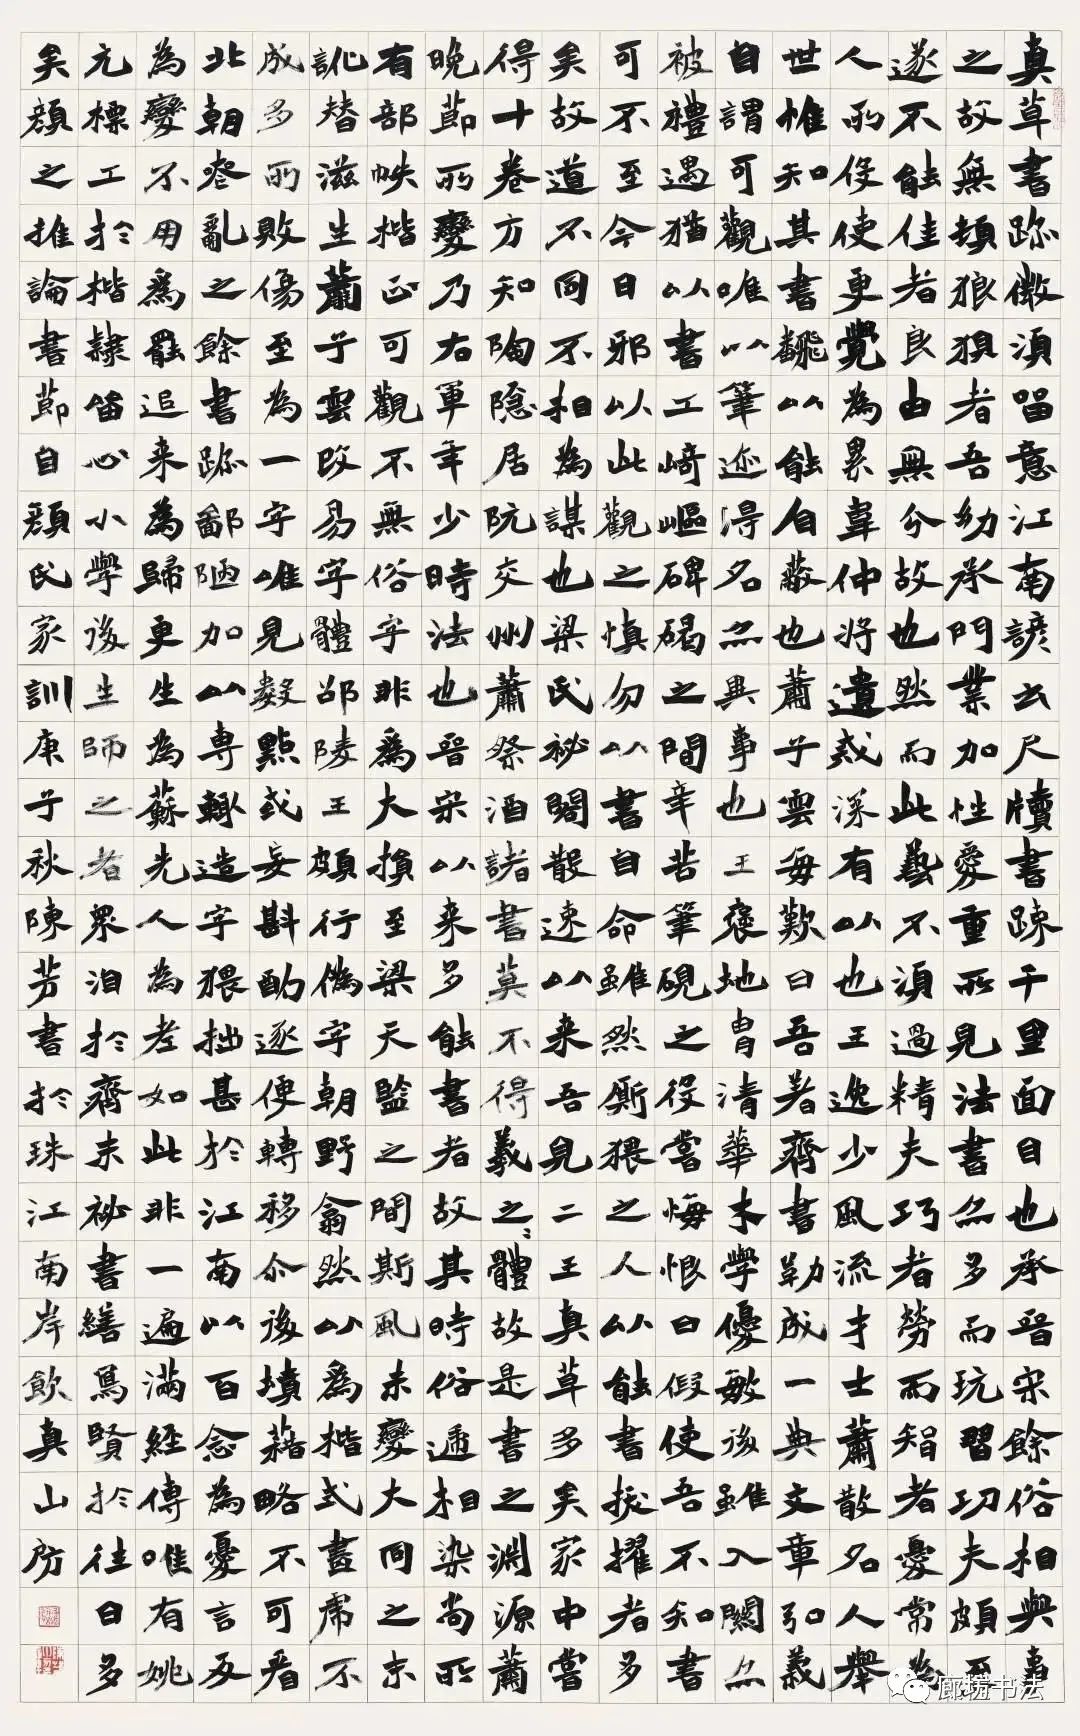 真草書跡微須留意江南諺云尺牘書疎千里面目也承晉宋餘俗相與事
之故無頓狼狽者吾幼承門業加性愛重所見法書亦多而玩習功夫頗至
遂不能佳者良由無分故也然而此藝不須過精夫巧者勞而智者憂常為
人所役使更覺為累韋仲將遺戒深有以也王逸少風流才士蕭散名人舉
世惟知其書翻以能自蔽也蕭子雲每歎曰吾著齊書勒成一典文章弘義
自謂可觀唯以筆迹得名亦異事也王褒地胄清華才學優敏後雖入關亦
被禮遇猶以書工崎嶇碑碣之間辛苦筆硯之役嘗悔恨曰假使吾不知書
可不至今日邪以此觀之慎勿以書自命雖然廝猥之人以能書拔擢者多
矣故道不同不相為謀也梁氏祕閣散逸以来吾見二王真草多矣家中嘗
得十卷方知陶隱居阮交州蕭祭酒諸書莫不得羲之〻體故是書之淵源蕭
晚節所變乃右軍年少時法也晉宋以来多能書者故其時俗遞相染尚所
有部帙楷正可觀不無俗字非為大損至梁天監之間斯風未變大同之末
訛替滋生蕭子雲改易字體邵陵王頗行偽字朝野翕然以為楷式畫虎不
成多所敗傷至為一字唯見數點或妄斟酌逐便轉移尒後墳藉略不可看
北朝喪亂之餘書跡鄙陋加以專輒造字猥拙甚於江南以百念為憂言反
為變不用為罷追来為歸更生為蘇先人為老如此非一遍滿經傳唯有姚
元標工於楷隸留心小學後生師之者眾洎於齊末祕書繕寫賢於往日多
矣顏之推論書節自顏氏家訓庚子秋陳芳書於珠江南岸飲真山房